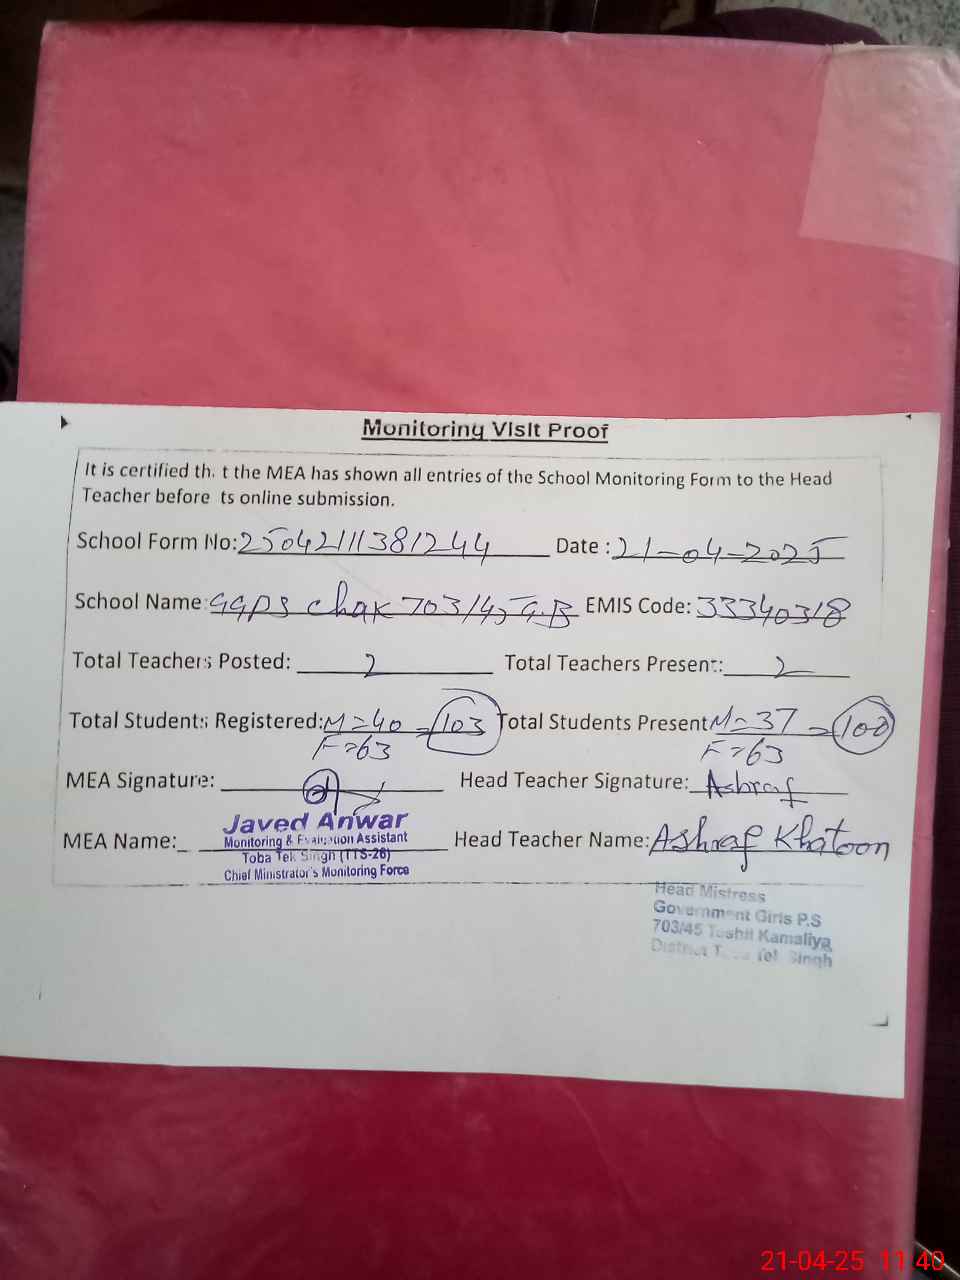 Monitoring Visit Proof
It is certified th. t the MEA has shown all entries of the School Monitoring Form to the Head
Teacher before ts online submission.
School Form No: 25042111381244 Date : 21-04-2025
School Name: GGPS Chak 703/45 G.B EMIS Code: 33340318
Total Teachers Posted: 2 Total Teachers Present: 2
Total Students Registered: M=40 =103 Total Students Present M=37 =100
F=63 F=63
MEA Signature: Head Teacher Signature: Ashraf
Javed Anwar
MEA Name: Monitoring & Evaluation Assistant Head Teacher Name: Ashraf Khatoon
Toba Tek Singh (TTS-26)
Chief Ministrator's Monitoring Force
Head Mistress
Government Girls P.S
703/45 Teshil Kamaliya
District Singh
21-04-25 11:40